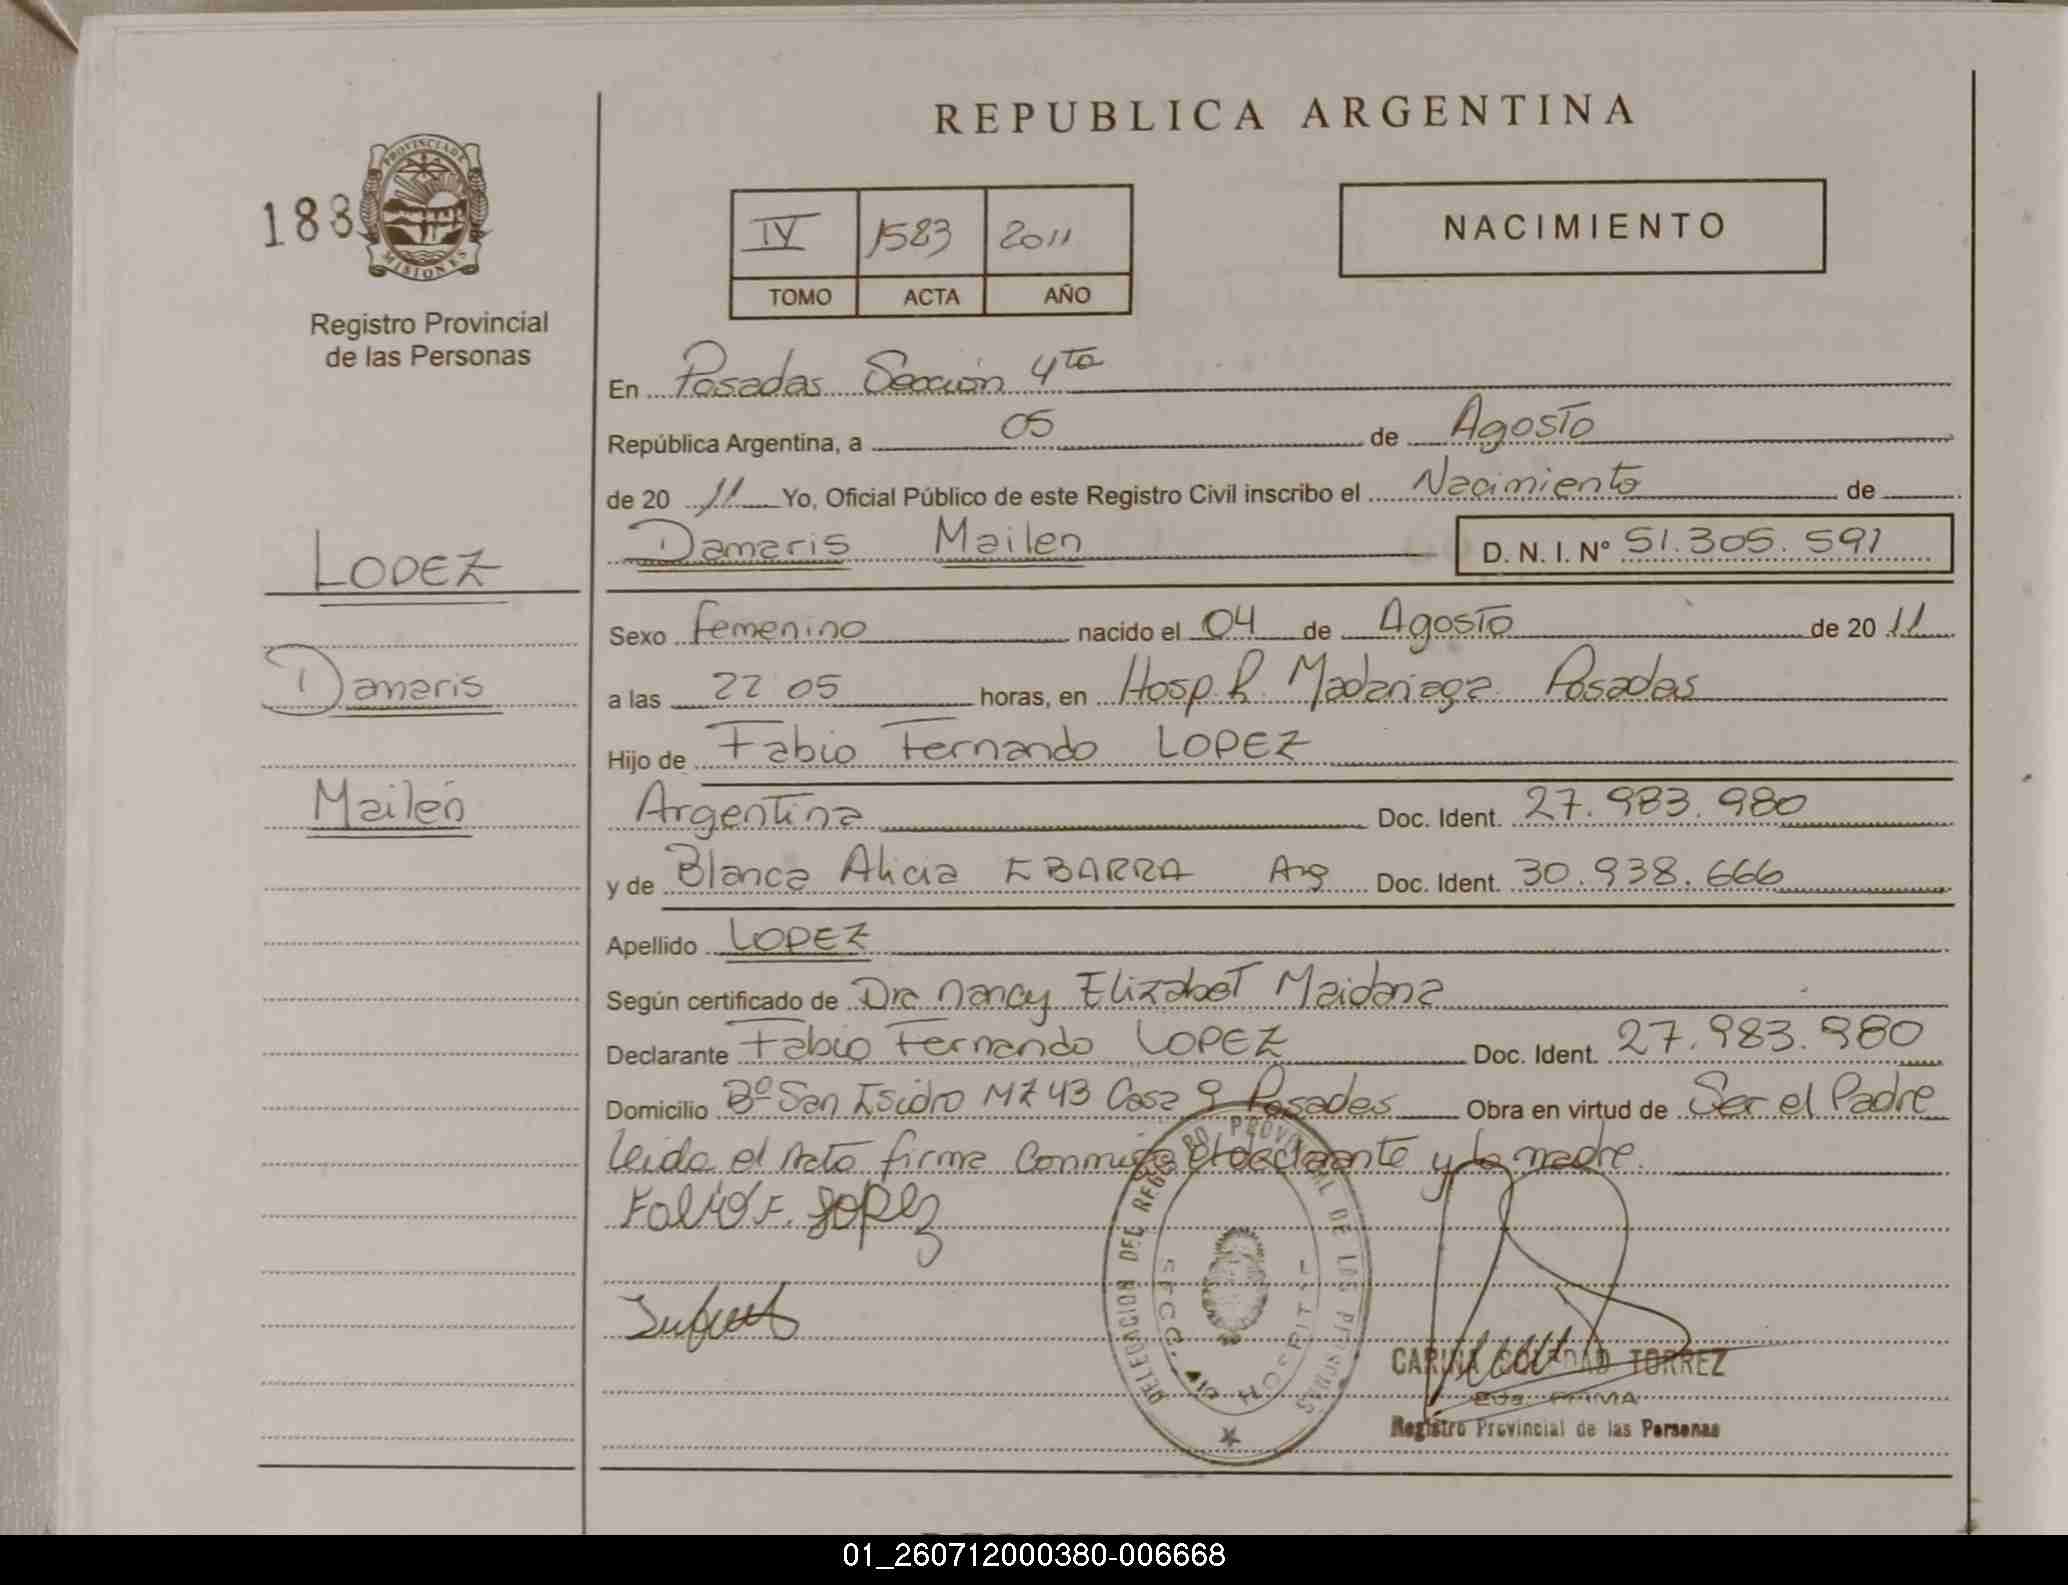 REPUBLICA ARGENTINA
183
PROVINCIA DE
MISIONES
Registro Provincial
de las Personas
IV 1583 2011
TOMO ACTA AÑO
NACIMIENTO
En Posadas Sección 4ta
República Argentina, a 05 de Agosto
de 20 11 Yo, Oficial Público de este Registro Civil inscribo el Nacimiento de
Damaris Mailen D. N. I. Nº 51.305.591
LOPEZ
Damaris
Mailén
Sexo femenino nacido el 04 de Agosto de 20 11
a las 22 05 horas, en Hosp. R. Madariaga Posadas
Hijo de Fabio Fernando LOPEZ
Argentina Doc. Ident. 27.983.980
y de Blanca Alicia EBARRA Arg Doc. Ident. 30.938.666
Apellido LOPEZ
Según certificado de Dra Nancy Elizabet Maidana
Declarante Fabio Fernando LOPEZ Doc. Ident. 27.983.980
Domicilio Bº San Isidro MZ 43 Casa 9 Posadas Obra en virtud de Ser el Padre
leida el Acta firma conmigo el declarante y la madre.
Fabio F. Lopez
DELEGACION DEL REGISTRO PROVINCIAL DE LAS PERSONAS
SECC. 4ta HOSPITAL
CARINA SOLEDAD TORREZ
FIRMA
Registro Provincial de las Personas
01_260712000380-006668